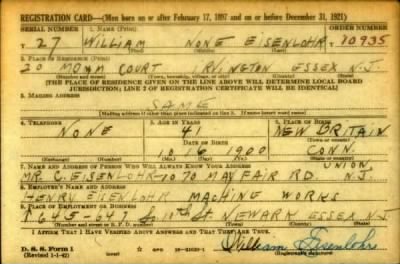 REGISTRATION CARD—(Men born on or after February 17, 1897 and on or before December 31, 1921)
SERIAL NUMBER 1. NAME (Print) ORDER NUMBER
T 27 WILLIAM NONE EISENLOHR 10935
(First) (Middle) (Last)
2. PLACE OF RESIDENCE (Print)
20 MONA COURT IRVINGTON ESSEX N.J.
(Number and street) (Town, township, village, or city) (County) (State)
[THE PLACE OF RESIDENCE GIVEN ON THE LINE ABOVE WILL DETERMINE LOCAL BOARD
JURISDICTION; LINE 2 OF REGISTRATION CERTIFICATE WILL BE IDENTICAL]
3. MAILING ADDRESS
SAME
[Mailing address if other than place indicated on line 2. If same insert word same]
4. TELEPHONE 5. AGE IN YEARS 6. PLACE OF BIRTH
NONE 41 NEW BRITAIN
DATE OF BIRTH (Town or county)
10 16 1900 CONN.
(Exchange) (Number) (Mo.) (Day) (Yr.) (State or country)
7. NAME AND ADDRESS OF PERSON WHO WILL ALWAYS KNOW YOUR ADDRESS UNION,
MR. C. EISENLOHR-1070 MAYFAIR RD. N.J.
8. EMPLOYER'S NAME AND ADDRESS
HENRI EISENLOHR MACHINE WORKS
9. PLACE OF EMPLOYMENT OR BUSINESS
645-647 So. 10th St NEWARK ESSEX N.J.
(Number and street or R. F. D. number) (Town) (County) (State)
I AFFIRM THAT I HAVE VERIFIED ABOVE ANSWERS AND THAT THEY ARE TRUE.
D. S. S. Form 1
(Revised 1-1-42) (over) William Eisenlohr
(Registrant's signature)